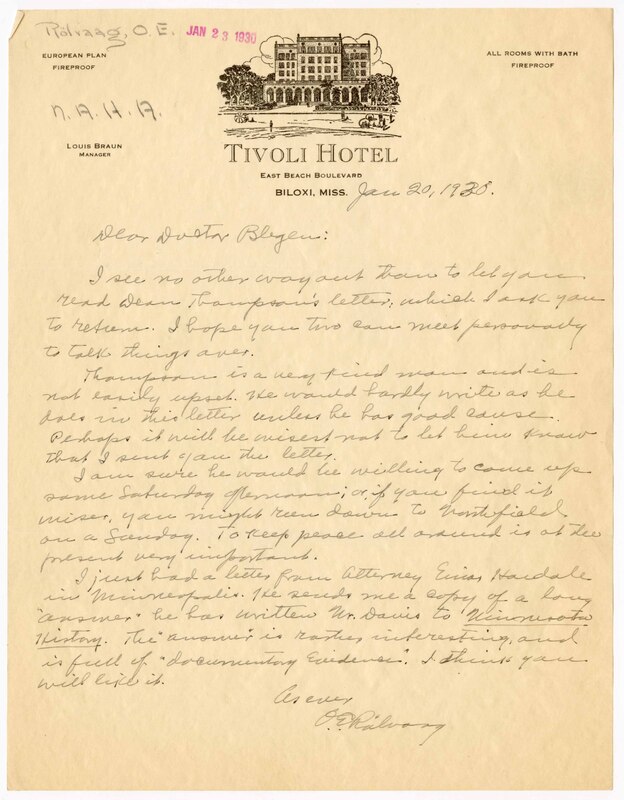 Rölvaag, O. E.
JAN 23 1930
EUROPEAN PLAN
FIREPROOF
ALL ROOMS WITH BATH
FIREPROOF
N. A. H. A.
LOUIS BRAUN
MANAGER
TIVOLI HOTEL
EAST BEACH BOULEVARD
BILOXI, MISS. Jan 20, 1930.
Dear Doctor Blegen:
I see no other way out than to let you
read Dean Thompson's letter, which I ask you
to return. I hope you two can meet personally
to talk things over.
Thompson is a very kind man and is
not easily upset. He would hardly write as he
does in this letter unless he has good cause.
Perhaps it will be wisest not to let him know
that I sent you the letter.
I am sure he would be willing to come up
some Saturday afternoon; or, if you find it
wiser, you might run down to Northfield
on a Sunday. To keep peace all around is at the
present very important.
I just had a letter from Attorney Einar Hoidale
in Minneapolis. He sends me a copy of a long
"answer" he has written Mr. Davis to Minnesota
History. The "answer" is rather interesting, and
is full of "documentary Evidence". I think you
will like it.
As ever
O. E. Rölvaag